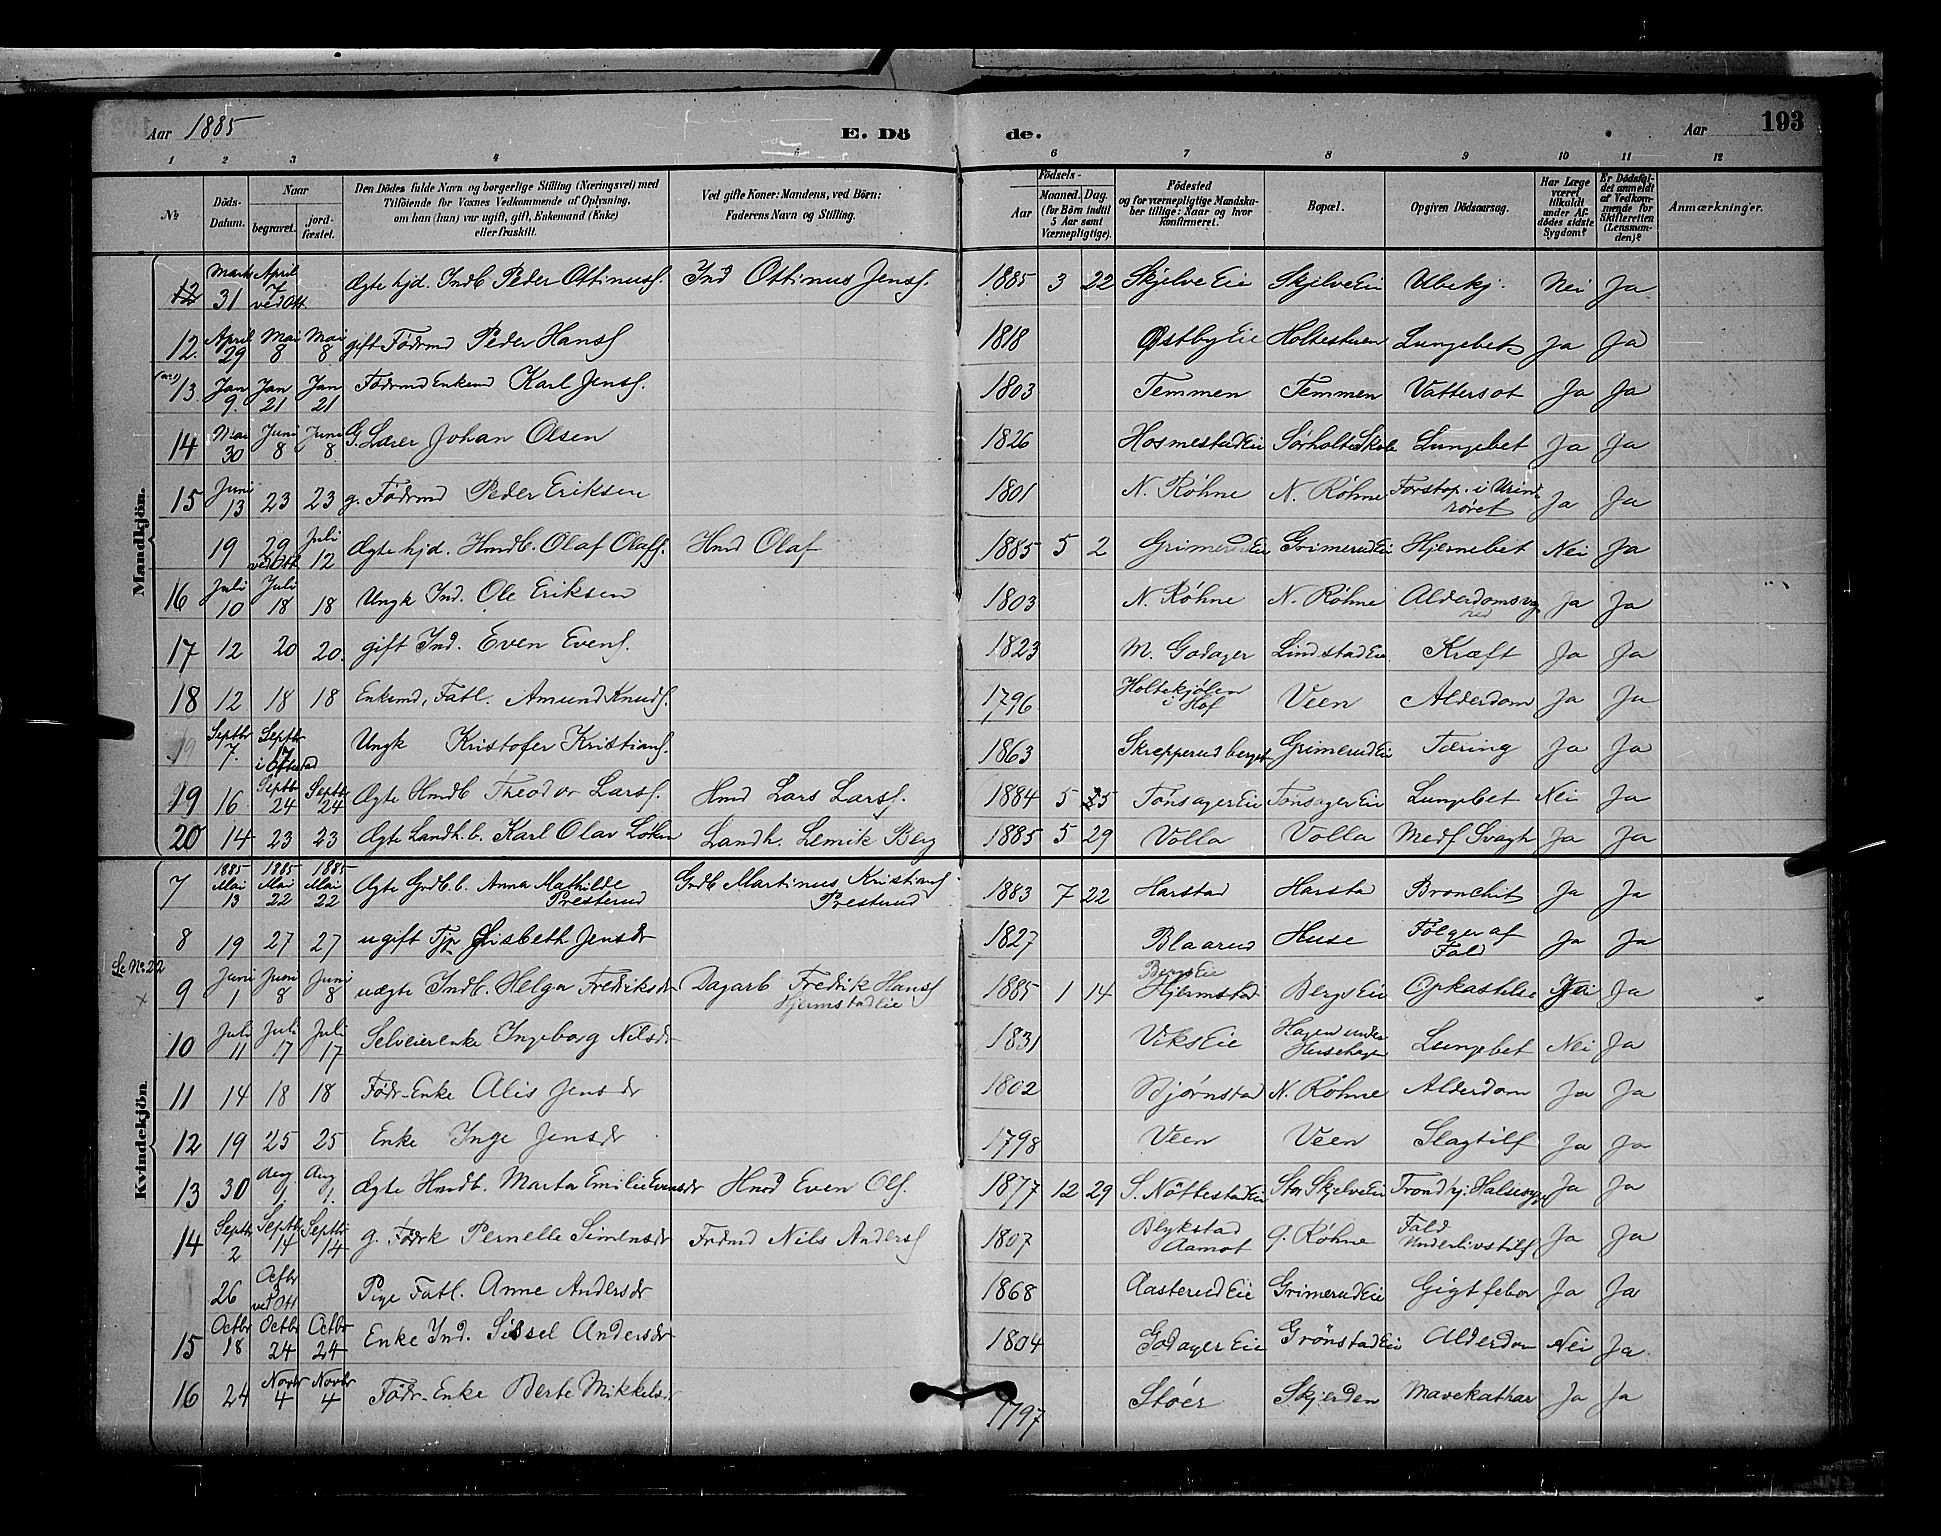 Aar 1885 E. Dö de. Aar 193
1 2 3 4 5 6 7 8 9 10 11 12
No
Döds-Datum.
Naar
begravet.
jord-fæstet.
Den Dödes fulde Navn og borgerlige Stilling (Næringsvei) med
Tilföiende for Voxnes Vedkommende af Oplysning,
om han (hun) var ugift, gift, Enkemand (Enke)
eller fraskilt.
Ved gifte Koner: Mandens, ved Börn:
Faderens Navn og Stilling.
Födsels-
Aar
Maaned. Dag.
(for Börn indtil
5 Aar samt
Værnepligtige).
Födested
og for værnepligtige Mandska-
ber tillige: Naar og hvor
Konfirmeret.
Bopæl.
Opgiven Dödsaarsag.
Har Læge
været
tilkaldt
under Af-
dödes sidste
Sygdom?
Er Dödsfal-
det anmeldt
af Vedkom-
mende for
Skifteretten
(Lensman-
den)?
Anmærkninger.
Mandkjön.
12 Marts 31 April 7 ved Ott Ægte hjd. Indb Peder Ottinusf. Ind Ottinus Jensf. 1885 3 22 Skjelve Eie Skjelve Eie Ubekj. Nei Ja
12 April 29 Mai 8 Mai 8 gift Födrmd Peder Hansf 1818 Østby Eie Holtestuen Lungebet Ja Ja
13 Jan 9. Jan 21 Jan 21 Födrmd Enkemd Karl Jensf. 1803 Temmen Temmen Vattersot Ja Ja
14 Mai 30 Juni 8 Juni 8 G. Lærer Johan Olsen 1826 Hosmestad Eie Sörholte Skole Lungebet Ja Ja
15 Juni 13 23 23 g. Födrmd Peder Eriksen 1801 N. Röhne N. Röhne Forstop. i Urin röret Ja Ja
19 29 ved Ott Juli 12 Ægte hjd. Hmdb. Olaf Olafs. Hmd Olaf 1885 5 2 Grimerud Eie Grimerud Eie Hjernebet Nei Ja
16 Juli 10 Juli 18 18 Ungk Ind. Ole Eriksen 1803 N. Röhne N. Röhne Alderdomsvag Ja Ja
17 12 20 20. gift Ind. Even Evenf. 1823 M. Godager Lindstad Eie Kræft Ja Ja
18 12 18 18 Enkemd, Fatl. Amund Knudf. 1796 Holtekjölen i Hof Veen Alderdom Ja Ja
19 Septbr 7. Septbr 17 i Ottestad Ungk Kristofer Kristiansf. 1863 Skrepperudberget Grimerud Eie Tæring Ja Ja
19 16 Septbr 24 Septbr 24 Ægte Hmdb Theodor Larsf. Hmd Lars Larsf. 1884 5 25 Tönsager Eie Tönsager Eie Lungebet Nei Ja
20 14 23 23 Ægte Landh. b. Karl Olav Loken Landh. Lemik Berg 1885 5 29 Volla Volla Medf Svagh Ja Ja
Kvindekjön.
7 1885 Mai 13 1885 Mai 22 1885 Mai 22 Ægte Grdb. b. Anna Mathilde Presterud Grdb Martinus Kristiansf Presterud 1883 7 22 Harstad Harstad Bronchit Ja Ja
8 19 27 27 ugift Tjp Lisbeth Jensdr 1827 Blaarud Huse Fölger af Fald Ja Ja
Se No 22
x 9 Juni 1 Juni 8 Juni 8 uægte Indb. Helga Fredriksdr Dagarb Fredrik Hansf Hjermstad Eie 1885 1 14 Bergs Eie Hjermstad Bergs Eie Opkastelse Nei Ja
10 Juli 11 Juli 17 Juli 17 Selveierenke Ingeborg Nilsdr 1831 Viks Eie Hagen under Husehagen Lungebet Nei Ja
11 14 18 18 Födr-Enke Alis Jensdr 1802 Bjørnstad N. Röhne Alderdom Ja Ja
12 19 25 25 Enke Inge Jensdr 1798 Veen Veen Slagtilf Ja Ja
13 30 Aug 1. Aug 1. Ægte Hmdb. Marta Emilie Evensdr Hmd Even Olf. 1877 12 29 S. Nöttestad Eie Stor Skjelve Eie Trondhj. Halssyge Ja Ja
14 Septbr 2 Septbr 14 Septbr 14 g. Födrk Pernelle Simensdr Frdmd Nils Andersf 1807 Blykstad Aamot Röhne Fald Underlivstilf Ja Ja
26 Octbr 3 ved Ott Pige Fatl. Anne Andersdr 1868 Aasterud Eie Grimerud Eie Gigtfeber Ja Ja
15 Octbr 18 Octbr 24 Octbr 24 Enke Ind. Sissel Andersdr 1804 Godager Eie Grönstad Eie Alderdom Nei Ja
16 24 Novbr 4 Novbr 4 Födr-Enke Berte Mikkelsdr 1797 Stöer Skjerden Mavekathar Ja Ja